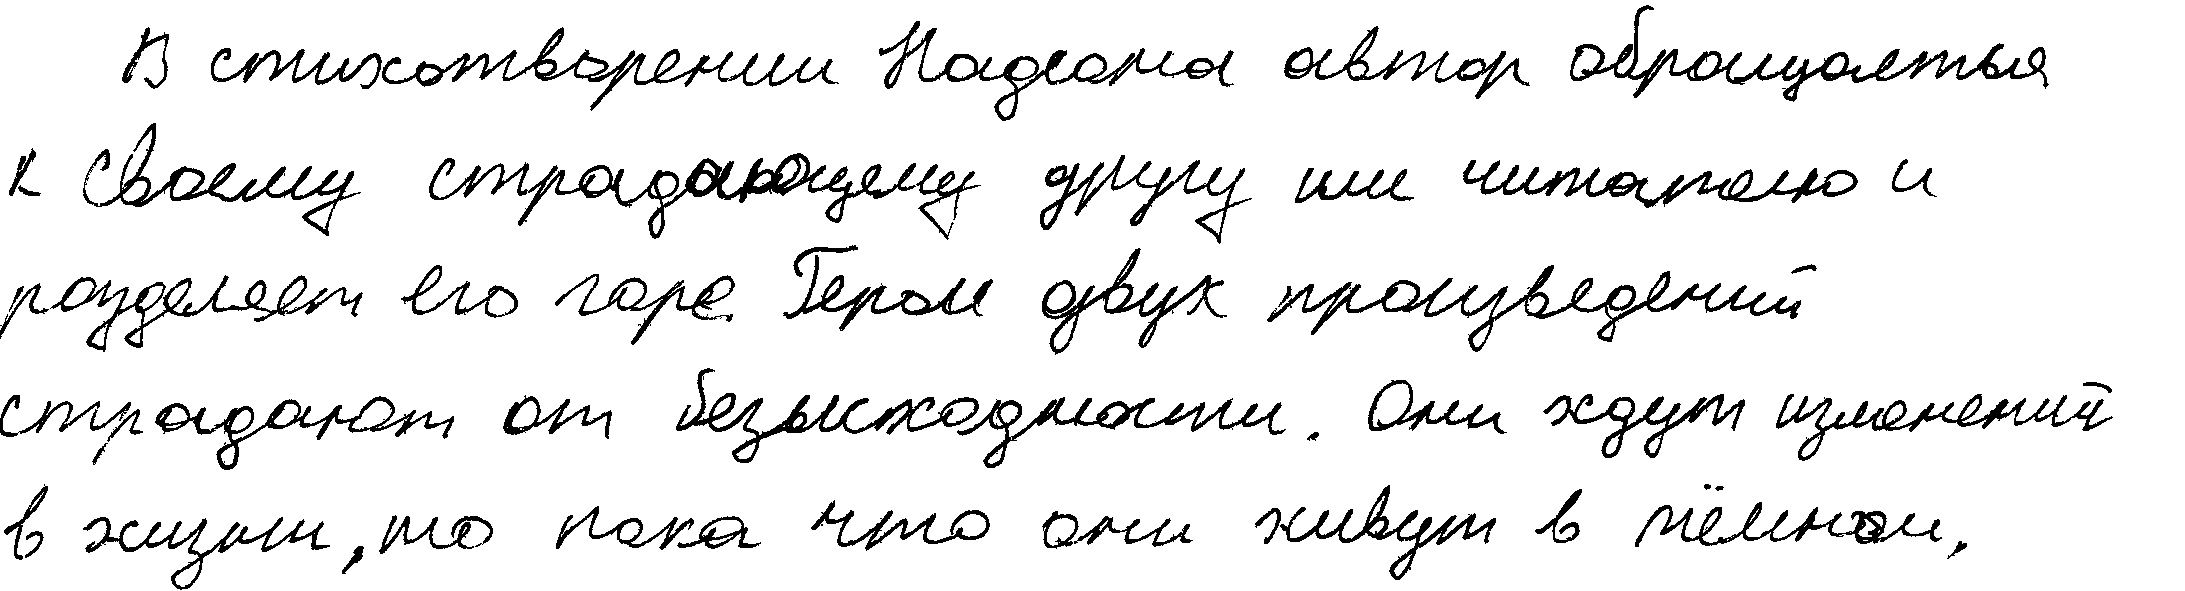 В стихотворении Надсона автор обращается
к своему страдающему другу или читателю и
разделяет его горе. Герои двух произведений
страдают от безысходности. Они ждут изменений
в жизни, но пока что они живут в тёмном,